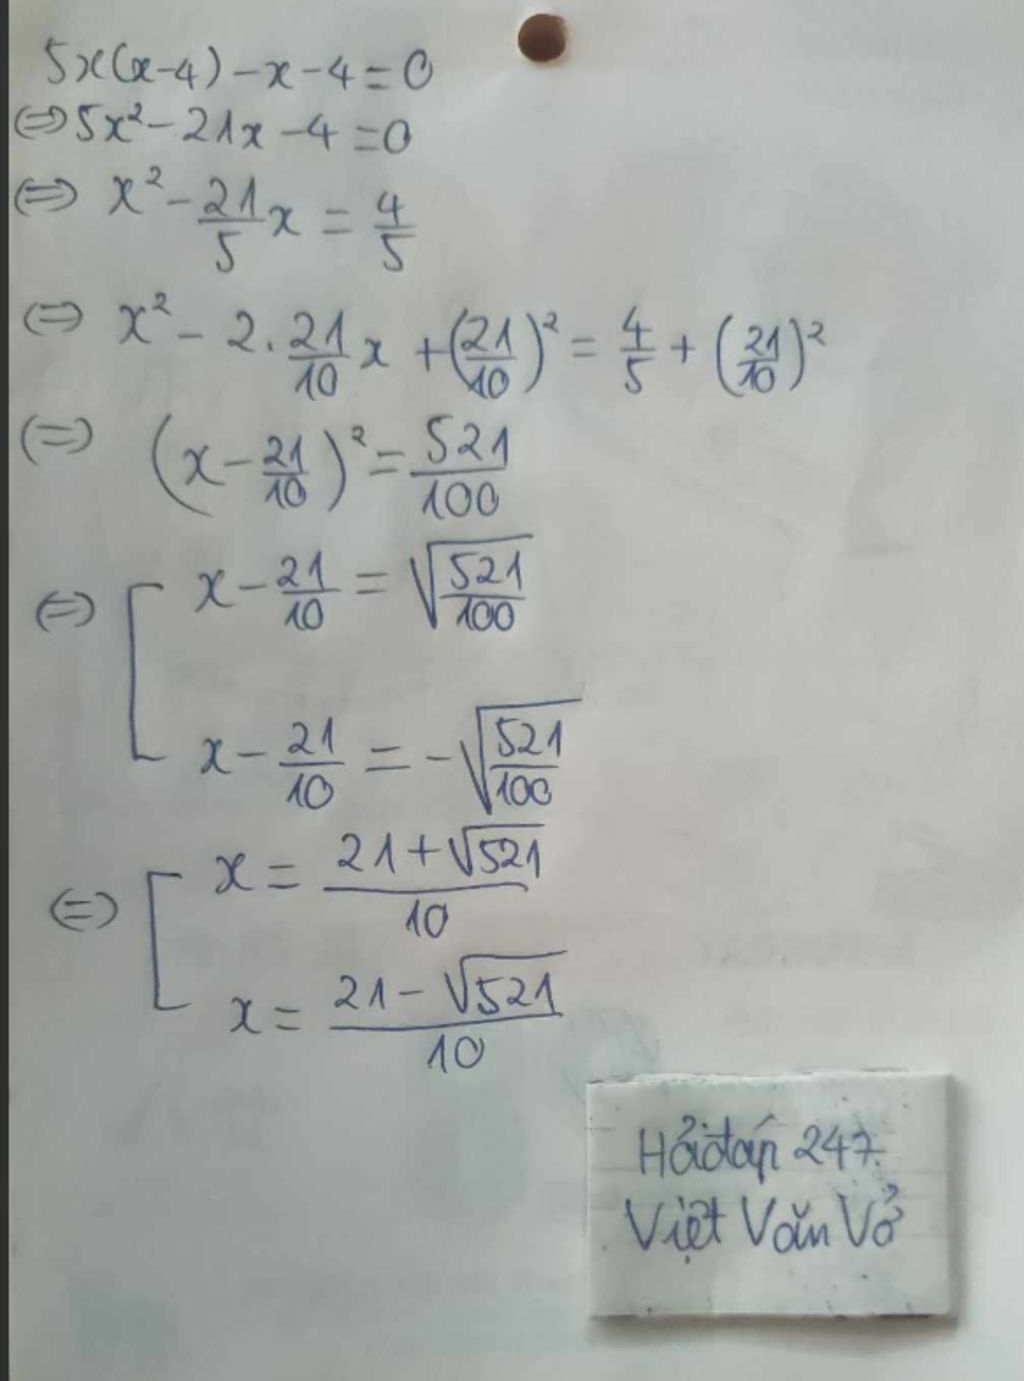 5x(x-4)-x-4=0
(=)5x²-21x-4=0
(=) x²-21/5x=4/5
(=) x²-2.21/10x+(21/10)²=4/5+(21/10)²
(=) (x-21/10)²=521/100
(=) [ x-21/10=√(521/100)
x-21/10=-√(521/100)
(=) [ x=(21+√521)/10
x=(21-√521)/10
Hỏiđáp 247.
Việt Văn Vở